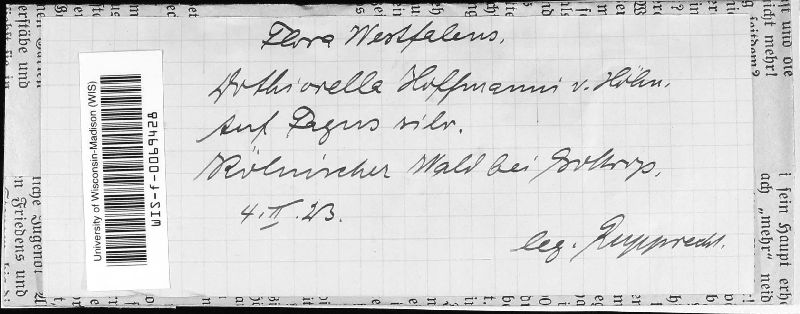 Flora Westfalens.
Dothiorella Hoffmanni v. Höhn.
Auf Fagus silv.
Kölnischer Wald bei Bottrop.
4. II. 23.
leg. Rupprecht.
University of Wisconsin-Madison (WIS)
WIS-f-0069428
erstäbe und
in Friedens und
iche Jugend
t und die
icht mehr!
seitdem?
i sein Haupt erh
ach „mehr" neid